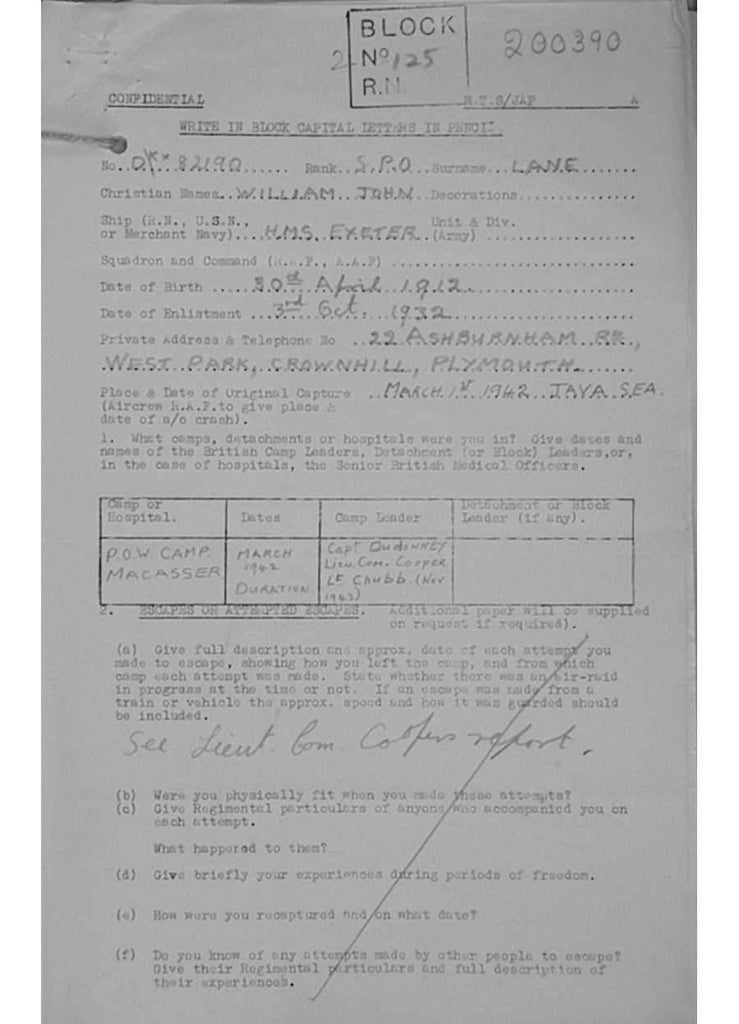 BLOCK
2 Nº 125
R.N.
200390
CONFIDENTIAL
WRITE IN BLOCK CAPITAL LETTERS IN PENCIL
No. 82190 Rank S.P.O Surname LANE
Christian Names WILLIAM JOHN Decorations
Ship (R.N., U.S.N., Unit & Div.
or Merchant Navy) H.M.S. EXETER (Army)
Squadron and Command (R.A.F., A.A.F)
Date of Birth 30th April 1912
Date of Enlistment 3rd Oct. 1932
Private Address & Telephone No 22 ASHBURNHAM RD.,
WEST PARK, CROWNHILL, PLYMOUTH
Place & Date of Original Capture MARCH 1st 1942 JAVA SEA.
(Aircrew R.A.F. to give place &
date of a/c crash).
1. What camps, detachments or hospitals were you in? Give dates and
names of the British Camp Leaders, Detachment (or Block) Leaders, or,
in the case of hospitals, the Senior British Medical Officers.
Camp or Hospital. Dates Camp Leader Detachment or Block Leader (if any).
P.O.W CAMP. MACASSER MARCH 1942 DURATION Capt Lieu. Com. Cooper Lt Chubb (Nov 1943)
2. ESCAPES OR ATTEMPTED ESCAPES. Additional paper will be supplied
on request if required).
(a) Give full description and approx. date of each attempt you
made to escape, showing how you left the camp, and from which
camp each attempt was made. State whether there was an air-raid
in progress at the time or not. If an escape was made from a
train or vehicle the approx. speed and how it was guarded should
be included.
See Lieut. Com. Coopers report.
(b) Were you physically fit when you made these attempts?
(c) Give Regimental particulars of anyone who accompanied you on
each attempt.
What happened to them?
(d) Give briefly your experiences during periods of freedom.
(e) How were you recaptured and on what date?
(f) Do you know of any attempts made by other people to escape?
Give their Regimental particulars and full description of
their experiences.